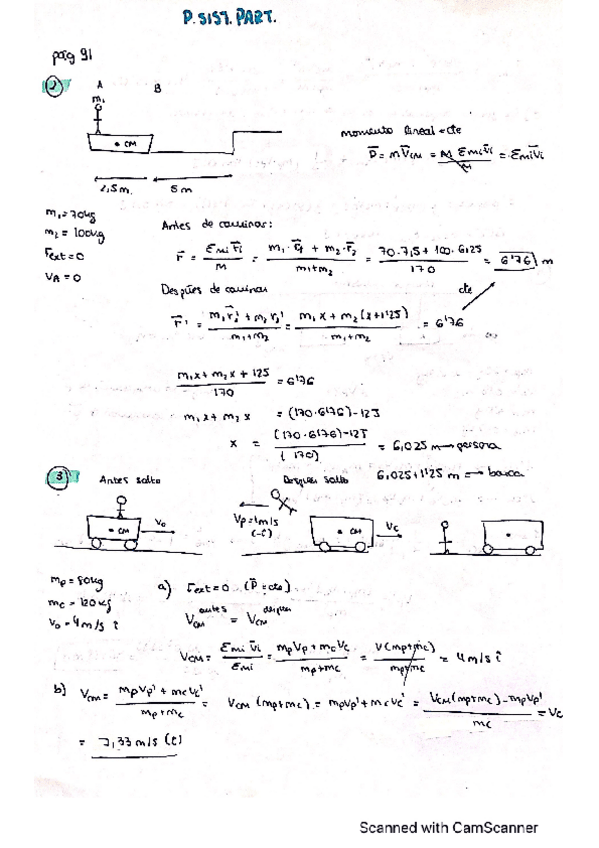 P. SIST. PART.
pág 91
2) A B
m₁
CM
momento lineal = cte
P⃗ = m V⃗CM = M Σmi v⃗i / M = Σmi v⃗i
2,5 m. 5 m.
m₁ = 70kg
m₂ = 100kg
Fext = 0
VA = 0
Antes de caminar:
r⃗ = Σmi r⃗i / M = (m₁·r⃗₁ + m₂·r⃗₂) / (m₁+m₂) = (70·7,5 + 100·6,25) / 170 = 6'76 m
Después de caminar cte
r⃗' = (m₁r⃗₁' + m₂r₂') / (m₁+m₂) = (m₁x + m₂(x+1'25)) / (m₁+m₂) = 6'76
(m₁x + m₂x + 125) / 170 = 6'76
m₁x + m₂x = (170·6'76) - 125
x = ((170·6'76) - 125) / (170) = 6,025 m → persona
6,025 + 1'25 m → barca
3) Antes salto Después salto
CM V₀ Vp = 4m/s (-i) CM Vc
mp = 80kg
mc = 120kg
V₀ = 4m/s î
a) Fext = 0 (P⃗ = cte)
VCM antes = VCM después
VCM = Σmi v⃗i / Σmi = (mpVp + mcVc) / (mp+mc) = V(mp+mc) / (mp+mc) = 4m/s î
b) VCM = (mpVp' + mcVc') / (mp+mc) = VCM (mp+mc) = mpVp' + mcVc' = (VCM(mp+mc) - mpVp') / mc = Vc
= 7,33 m/s (î)
Scanned with CamScanner